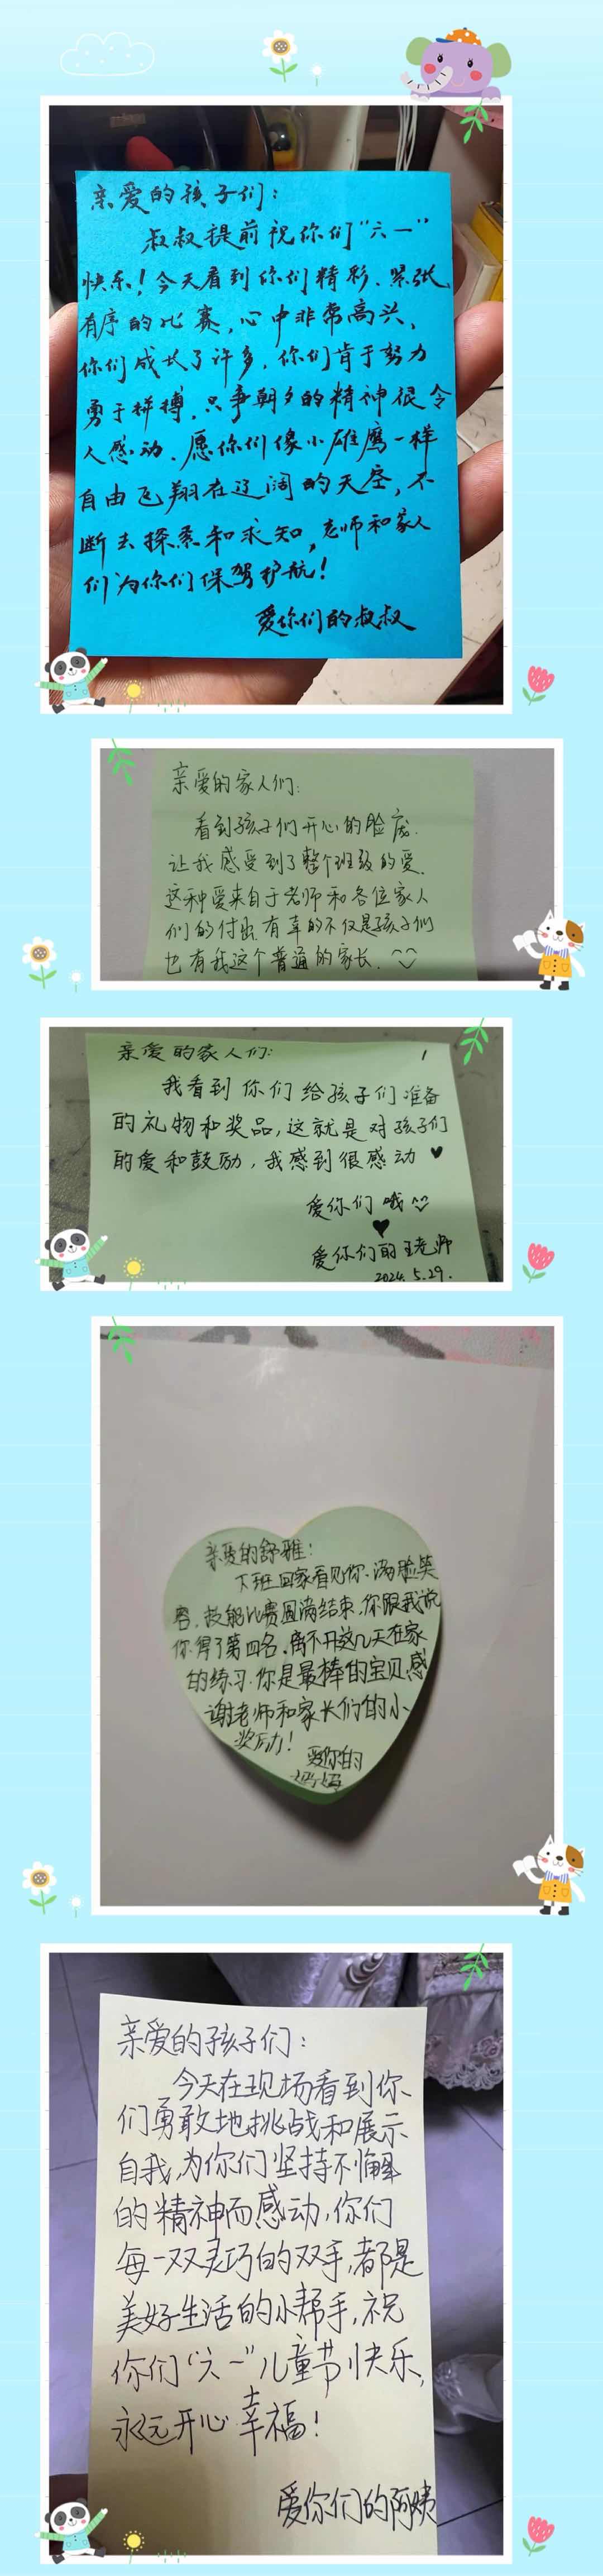 亲爱的孩子们：
叔叔提前祝你们“六一”
快乐！今天看到你们精彩、紧张
有序的比赛，心中非常高兴，
你们成长了许多，你们肯于努力
勇于拼搏，只争朝夕的精神很令
人感动、愿你们像小雄鹰一样
自由飞翔在辽阔的天空，不
断去探索和求知，老师和家人
们为你们保驾护航！
爱你们的叔叔
亲爱的家人们：
看到孩子们开心的脸庞.
让我感受到了整个班级的爱.
这种爱来自于老师和各位家人
们的付出.有幸的不仅是孩子们
也有我这个普通的家长.
亲爱的家人们：
我看到你们给孩子们准备
的礼物和奖品，这就是对孩子们
的爱和鼓励，我感到很感动♥
爱你们哦
♥
爱你们的王老师
2024.5.29.
亲爱的舒雅：
下班回家看见你、满脸笑
容，技能比赛圆满结束，你跟我说
你得了第四名，离不开这几天在家
的练习.你是最棒的宝贝，感
谢老师和家长们的小
奖励！
爱你的
妈妈
亲爱的孩子们：
今天在现场看到你
们勇敢地挑战和展示
自我，为你们坚持不懈
的精神而感动，你们
每一双灵巧的双手，都是
美好生活的小帮手，祝
你们“六一”儿童节快乐，
永远开心幸福！
爱你们的阿姨